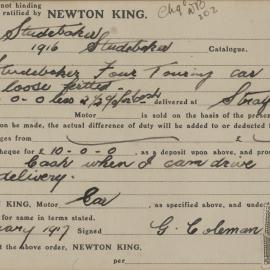 not binding
ratified by NEWTON KING. Chq 6
202
Studebaker
1916 Studebaker Catalogue.
Studebaker Four Touring car
loose fitted
0-0 less 2½% for cash delivered at
Motor is sold on the basis of the present
on be made, the actual difference of duty will be added to or deducted
ges from £
cheque for £ 10-0-0 as a deposit upon above, and
Cash when I can drive
delivery.
KING, Motor Car as specified above, and under
for same in terms stated.
uary 1917 Signed G. Coleman
t the above order, NEWTON KING,
per